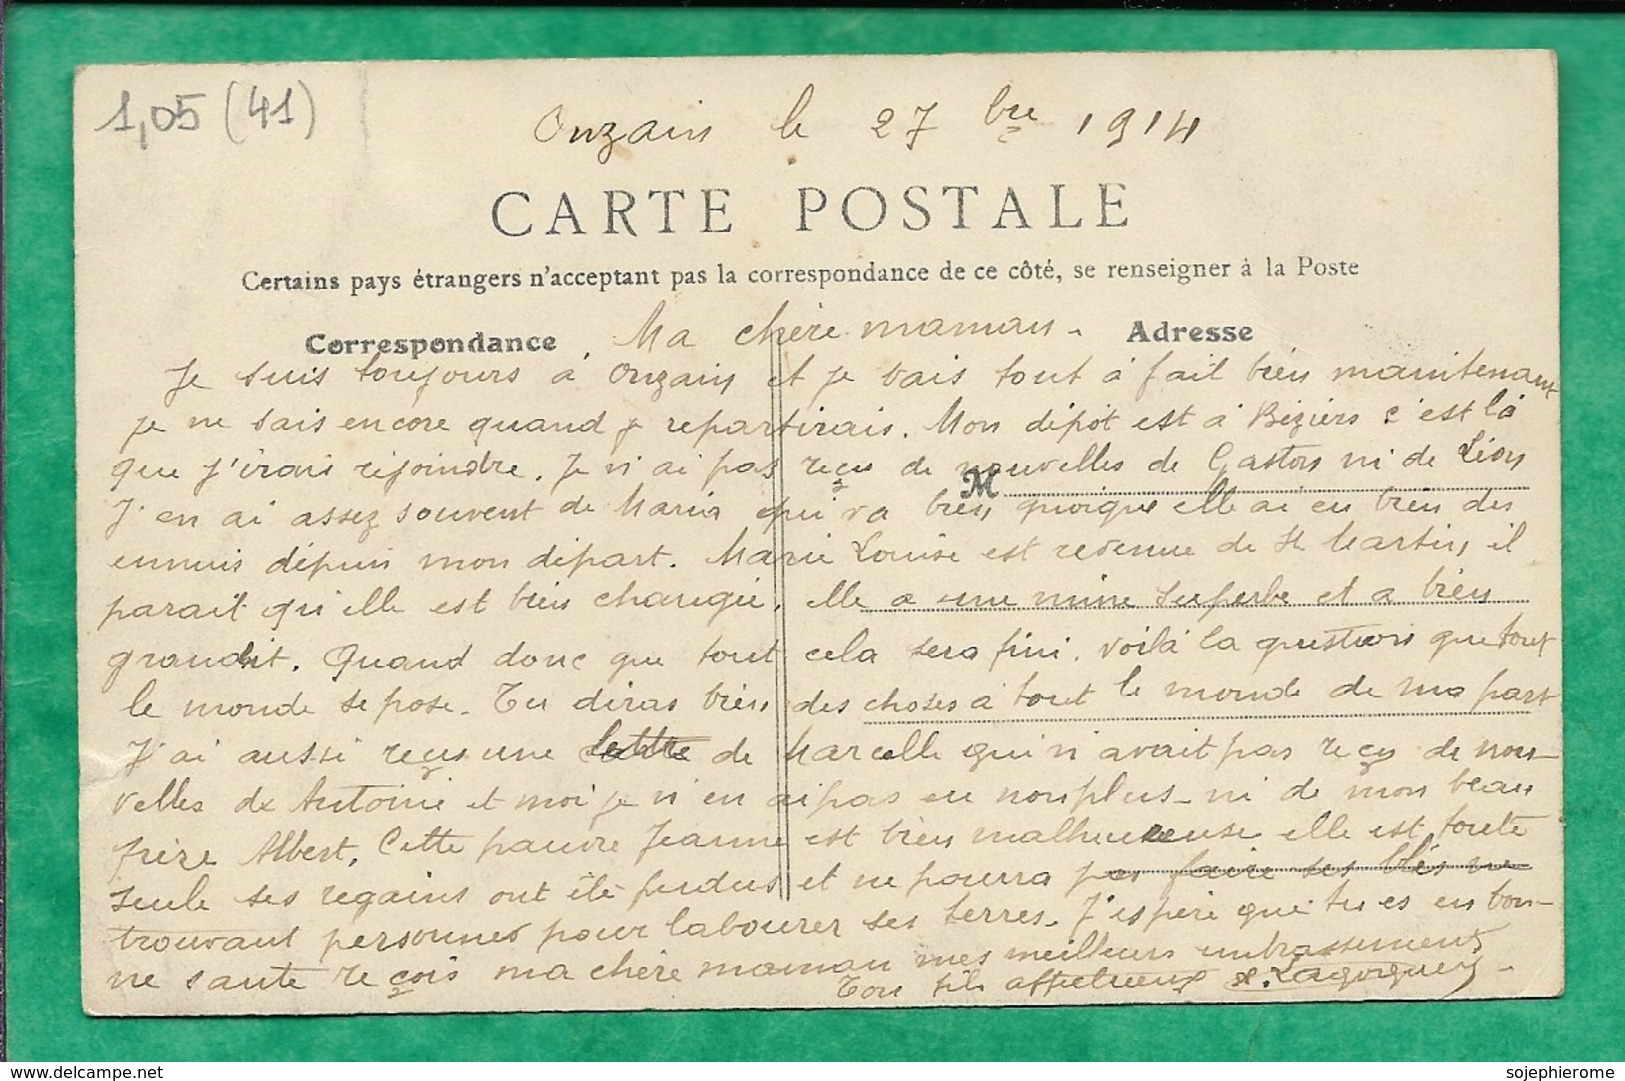 1,05 (41)
Onzain le 27 bre 1914
CARTE POSTALE
Certains pays étrangers n'acceptant pas la correspondance de ce côté, se renseigner à la Poste
Correspondance Ma chère maman - Adresse
Je suis toujours à Onzain et je vais tout à fait bien maintenant
je ne sais encore quand je repartirais. Mon dépôt est à Béziers c'est là
que j'irais rejoindre. Je n'ai pas reçu de nouvelles de Gaston ni de Léon
M
J'en ai assez souvent de Maria qui va bien quoique elle ai eu bien des
ennuis dépuis mon départ. Marie Louise est revenue de St Martin, il
parait qu'elle est bien changée, elle a une mine superbe et a bien
grandit. Quand donc que tout cela sera fini. voilà la question que tout
le monde se pose. Tu diras bien des choses à tout le monde de ma part
J'ai aussi reçu une lettre de Marcelle qui n'avait pas reçu de nou-
velles de Antoine et moi je n'en ai pas eu non plus - ni de mon beau
frère Albert. Cette pauvre Jeanne est bien malheureuse elle est toute
seule ses regains ont été perdus et ne pourra pas faire ses blés ne
trouvant personnes pour labourer ses terres. J'espère que tu es en bon-
ne santé reçois ma chère maman mes meilleurs embrassements
Ton fils affectueux